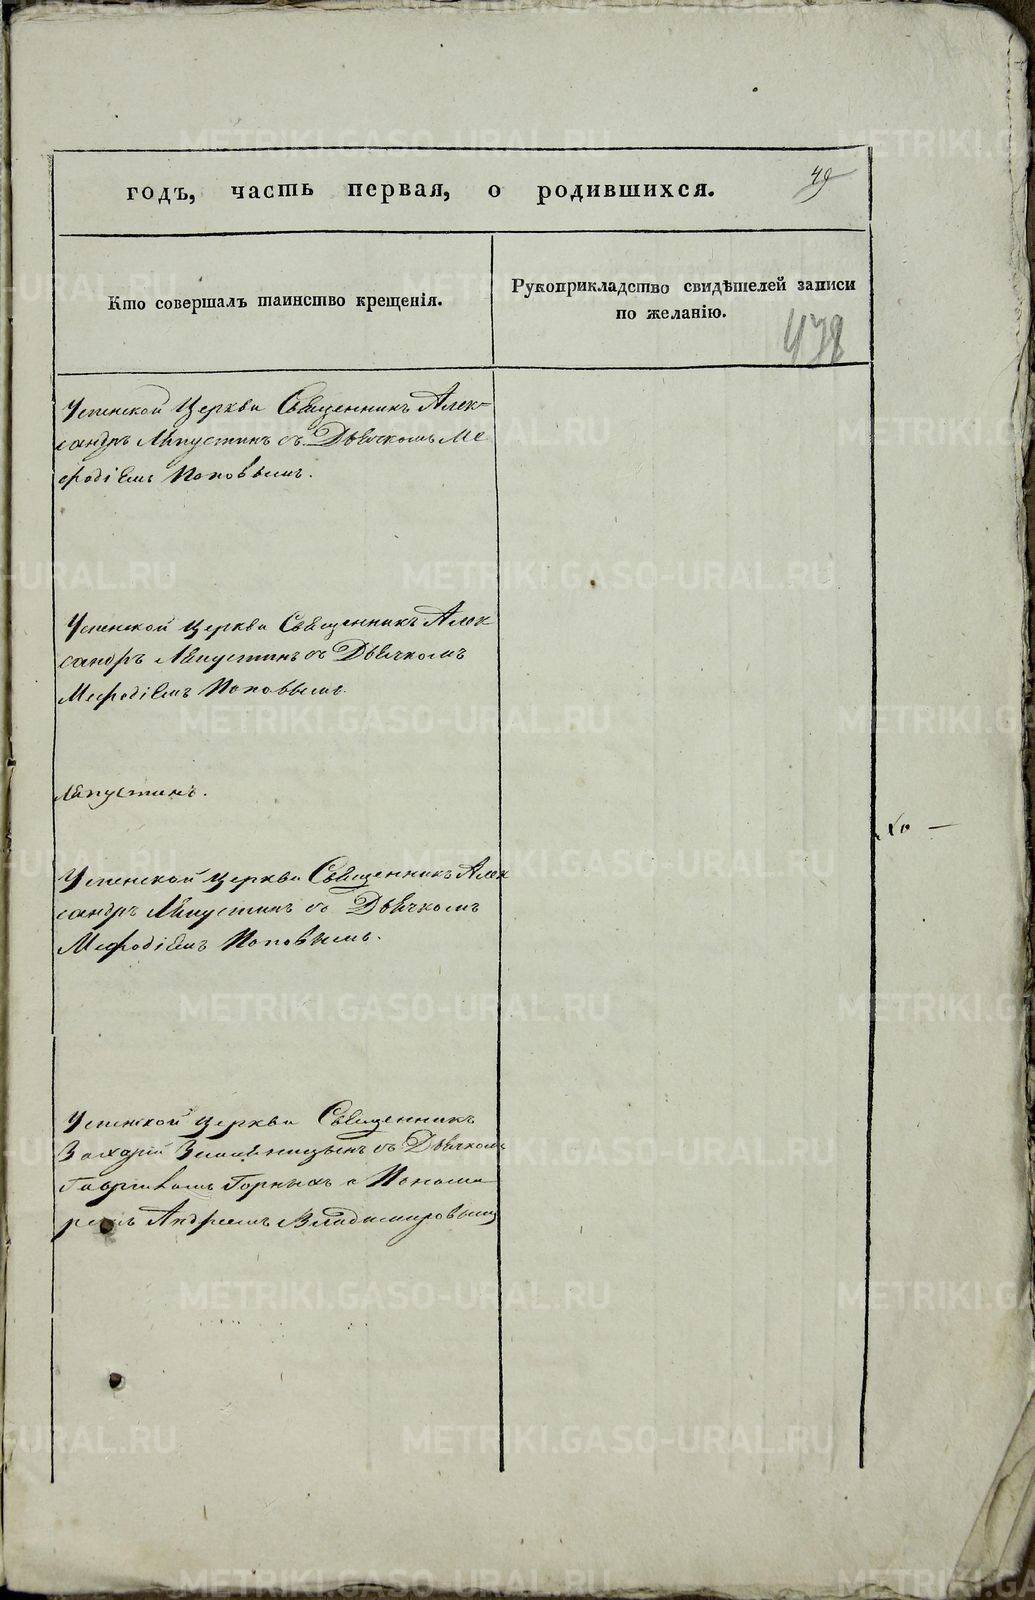 годъ, часть первая, о родившихся.
49
Кто совершалъ таинство крещенія.
Рукоприкладство свидѣтелей записи
по желанію.
438
Успенской Церкви Священникъ Алек=
сандръ Ляпустинъ съ Дьячкомъ Ме
фодіемъ Поповымъ.
Успенской церкви Священникъ Алек
сандръ Ляпустинъ съ Дьячкомъ
Мефодіемъ Поповымъ.
Ляпустинъ.
Успенской церкви Священникъ Алек
сандръ Ляпустинъ съ Дьячкомъ
Мефодіемъ Поповымъ.
Успенской церкви Священникъ
Захарій съ Дьячкомъ
Горныхъ и Понома
ремъ Андреемъ Владимировымъ
METRIKI.GASO-URAL.RU